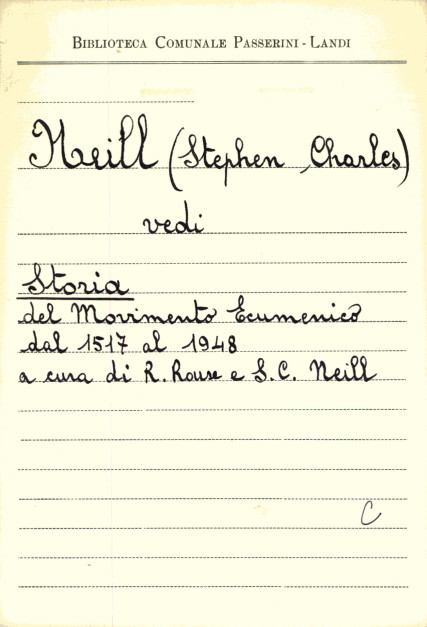 BIBLIOTECA COMUNALE PASSERINI - LANDI
Neill (Stephen Charles)
vedi
Storia
del Movimento Ecumenico
dal 1517 al 1948
a cura di R. Rouse e S.C. Neill
C